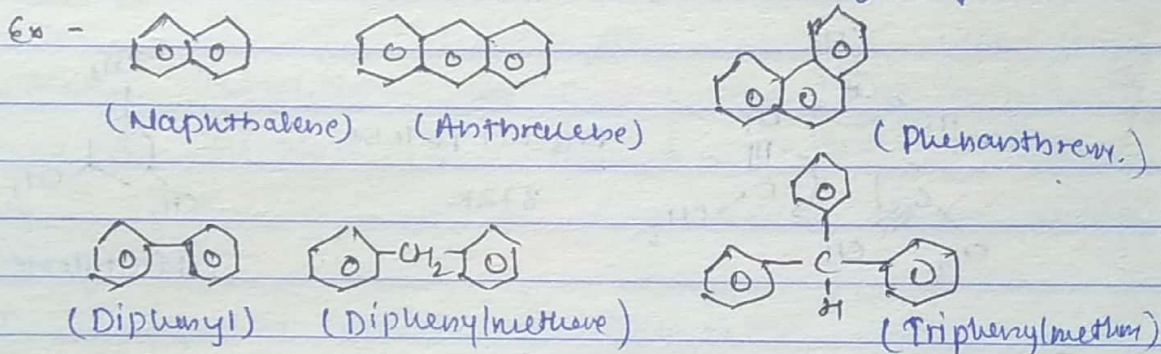 Ex -
(Naphthalene) (Anthracene) (Phenanthrene.)
(Diphenyl) -CH2- (Diphenylmethane) C H (Triphenylmethan)